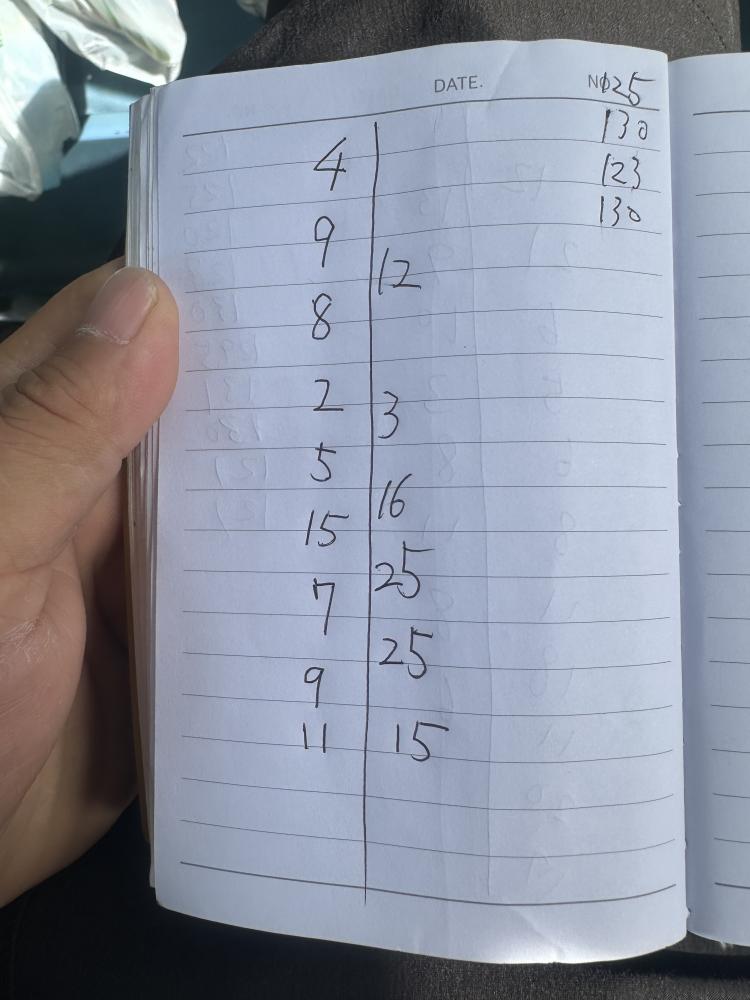 DATE. NO 125
130
4
123
130
9
12
8
2
3
5
16
15
25
7
25
9
11 15